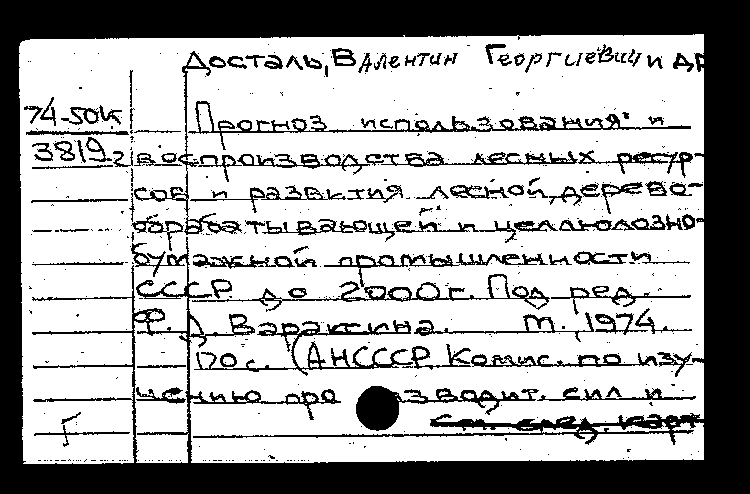 Досталь, Валентин Георгиевич и др
74-50к
Прогноз использования и
3819-2
воспроизводства лесных ресур-
сов и развития лесной, дерево-
обрабатывающей и целлюлозно-
бумажной промышленности
СССР до 2000 г. Под ред.
Ф. Д. Вараксина. М., 1974.
170 с. (АН СССР. Комис. по изу-
чению про зводит. сил и
Г
См. след. карт